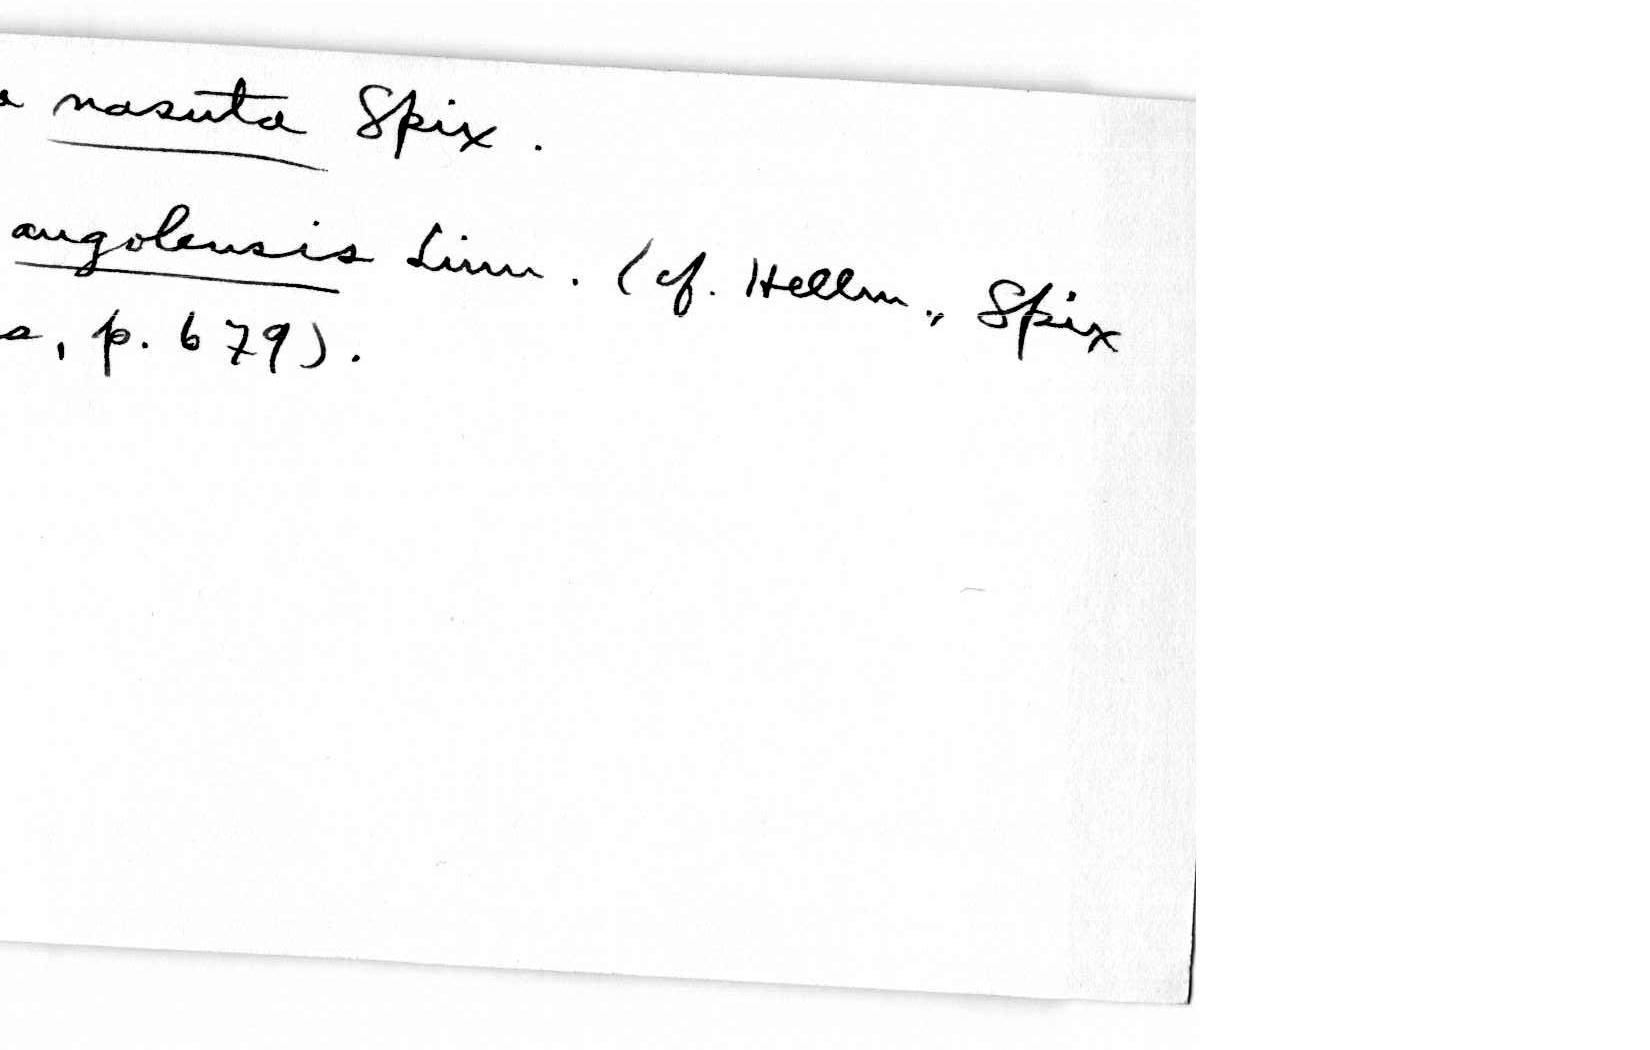 a nasuta Spix.
angolensis Linn. (cf. Hellm., Spix
s, p. 679).